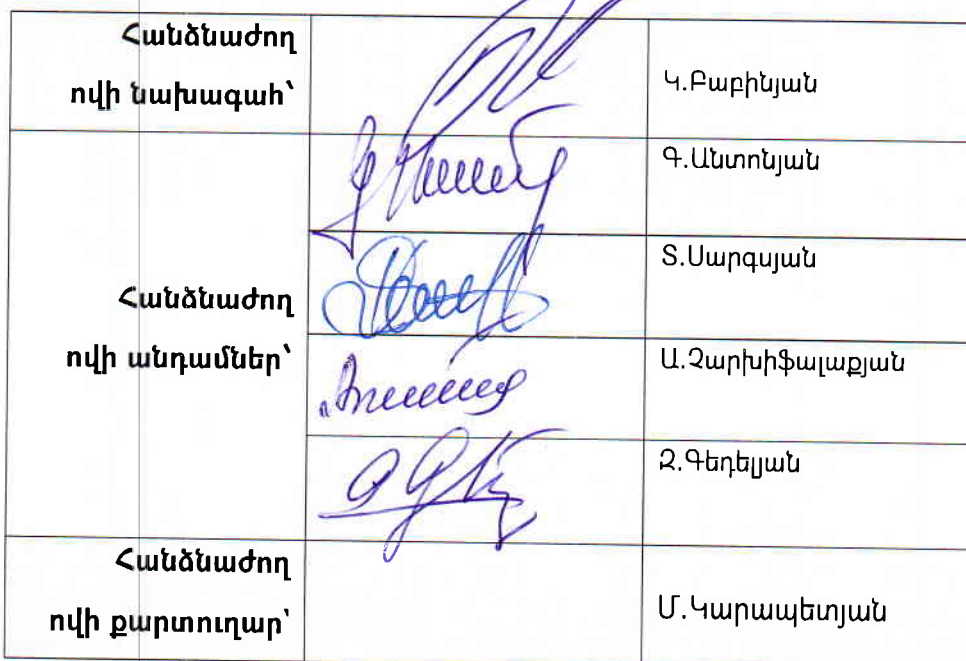 Հանձնաժող
ովի նախագահ՝
Կ.Բաբինյան
Հանձնաժող
ովի անդամներ՝
Գ.Անտոնյան
Տ.Սարգսյան
Ա.Չարխիֆալաքյան
Զ.Գեդելյան
Հանձնաժող
ովի քարտուղար՝
Մ.Կարապետյան